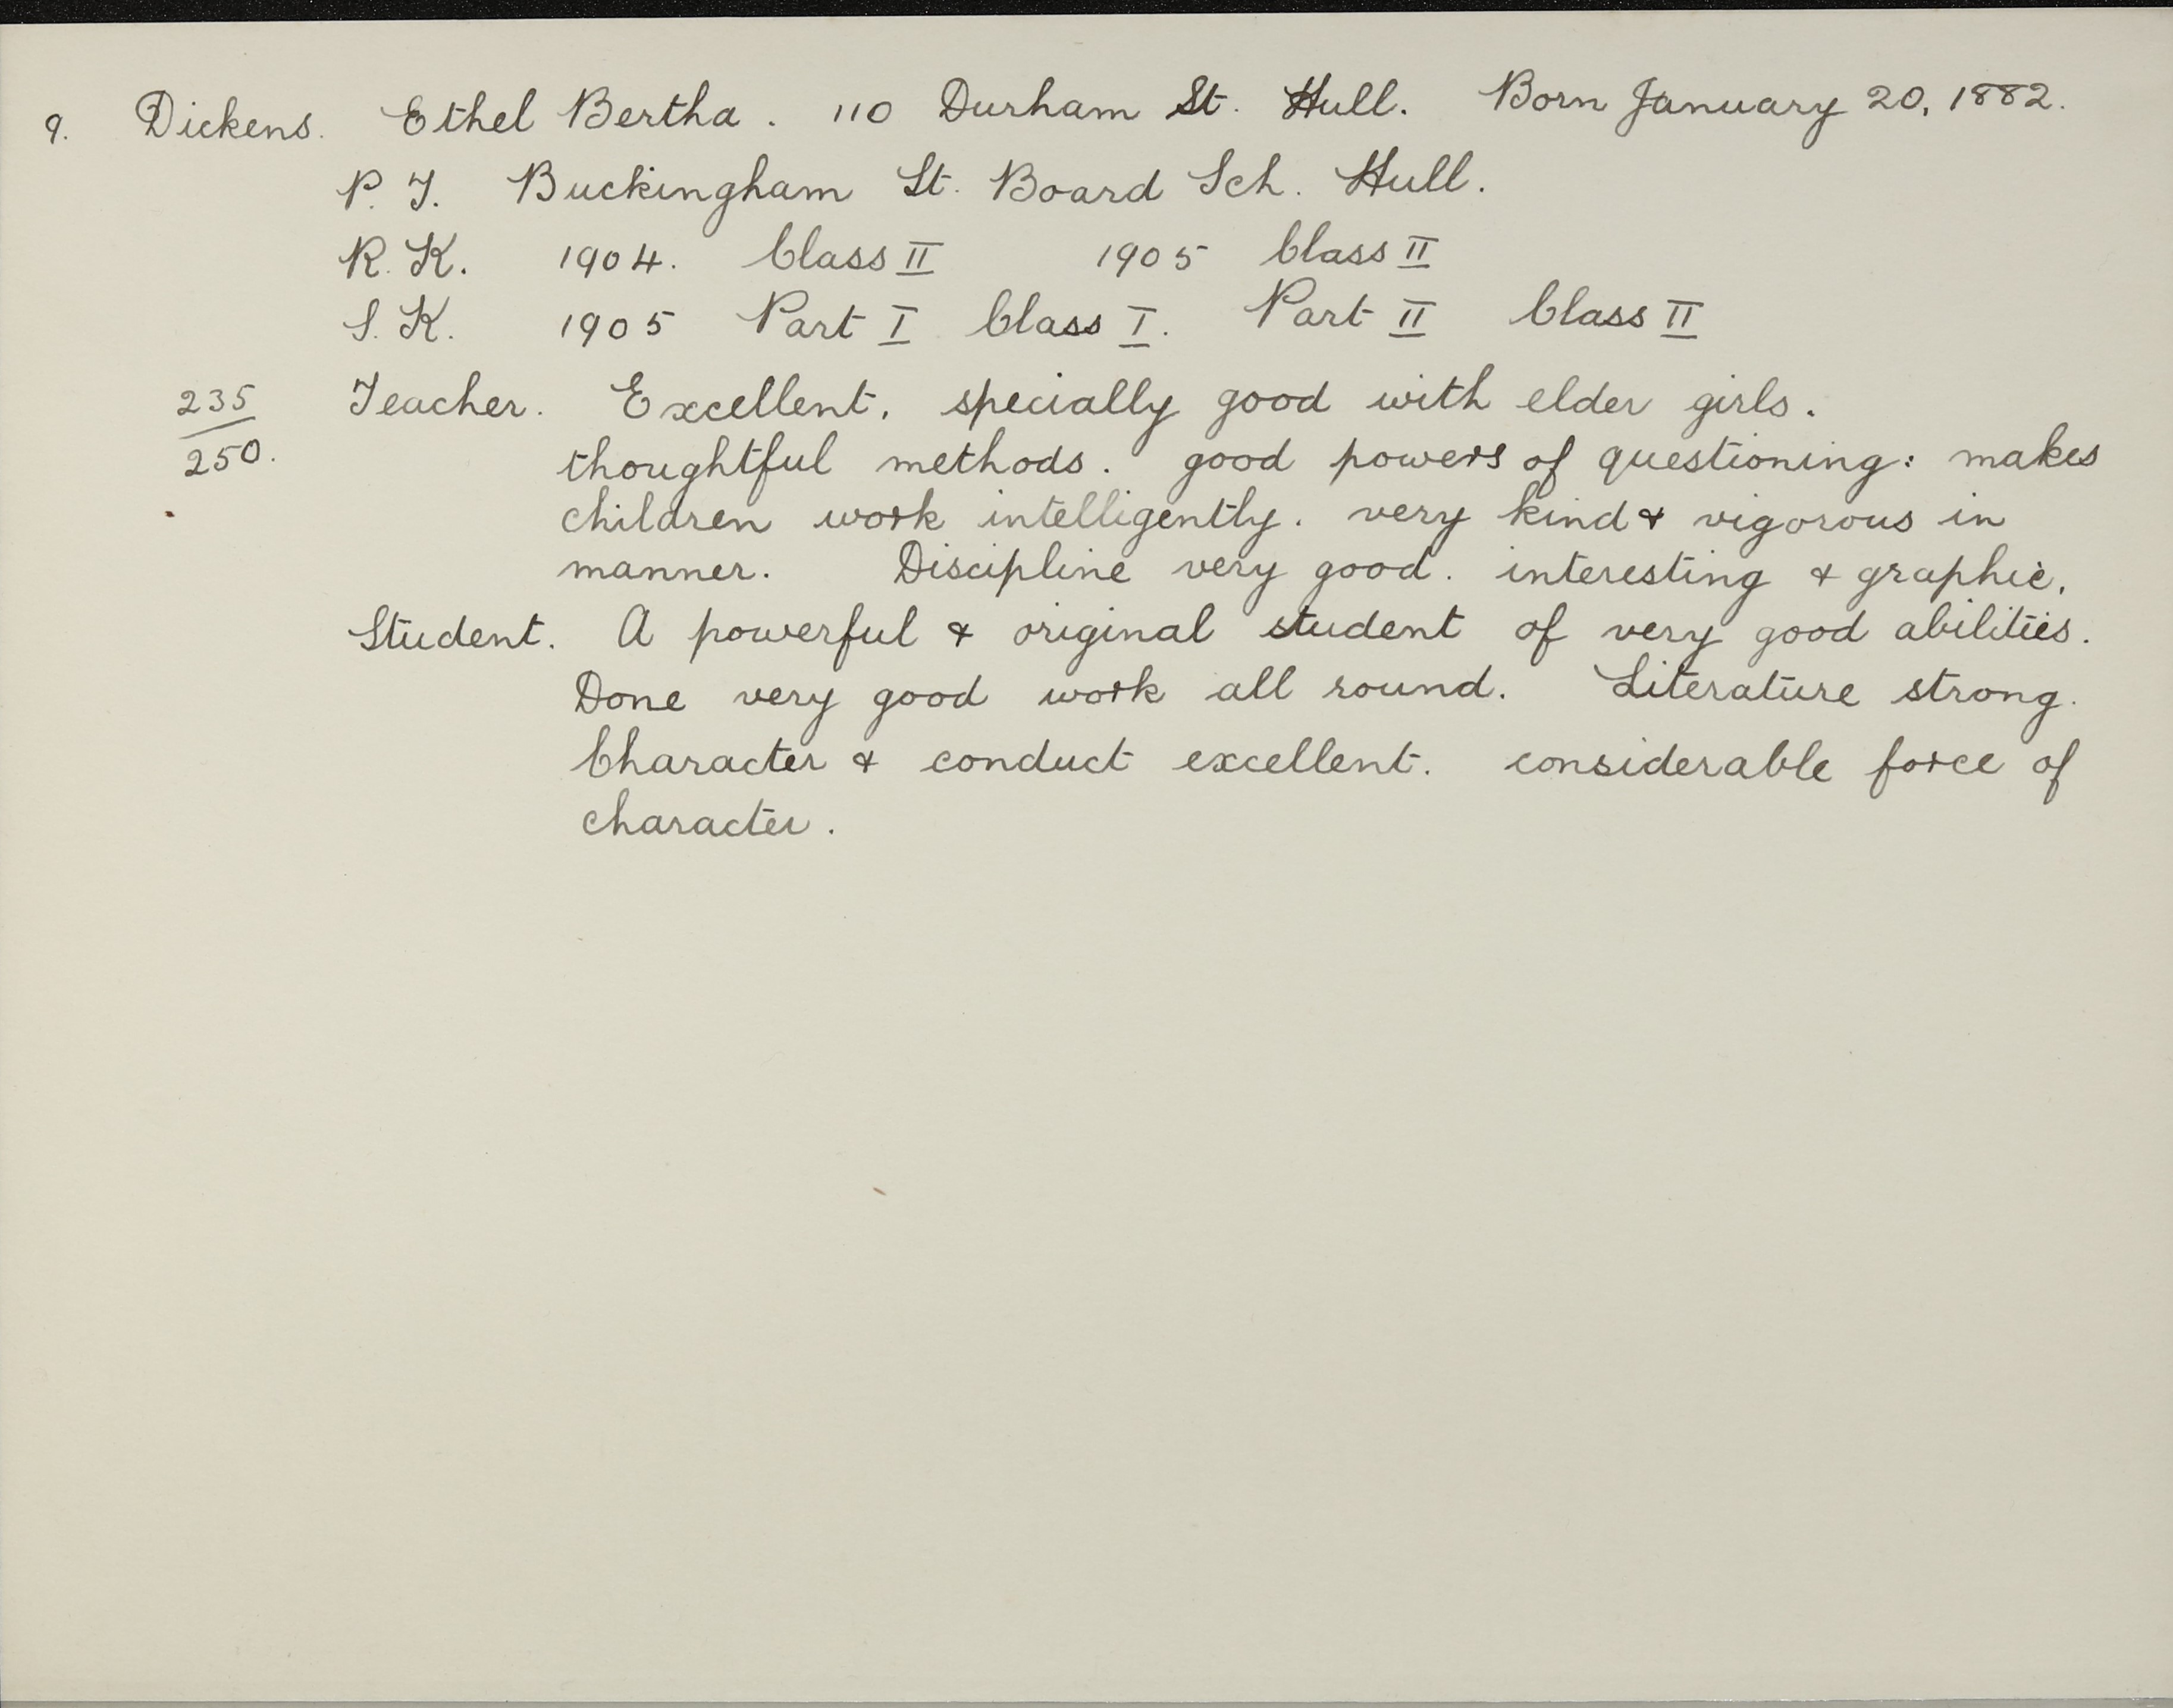 9. Dickens. Ethel Bertha. 110 Durham St. Hull. Born January 20, 1882.
P. T. Buckingham St. Board Sch. Hull.
R. K. 1904. Class II 1905 Class II
S. K. 1905 Part I Class I. Part II Class II
235/250. Teacher. Excellent, specially good with elder girls.
thoughtful methods. good powers of questioning: makes
children work intelligently. very kind & vigorous in
manner. Discipline very good. interesting & graphic.
Student. A powerful & original student of very good abilities.
Done very good work all round. Literature strong.
Character & conduct excellent. considerable force of
character.